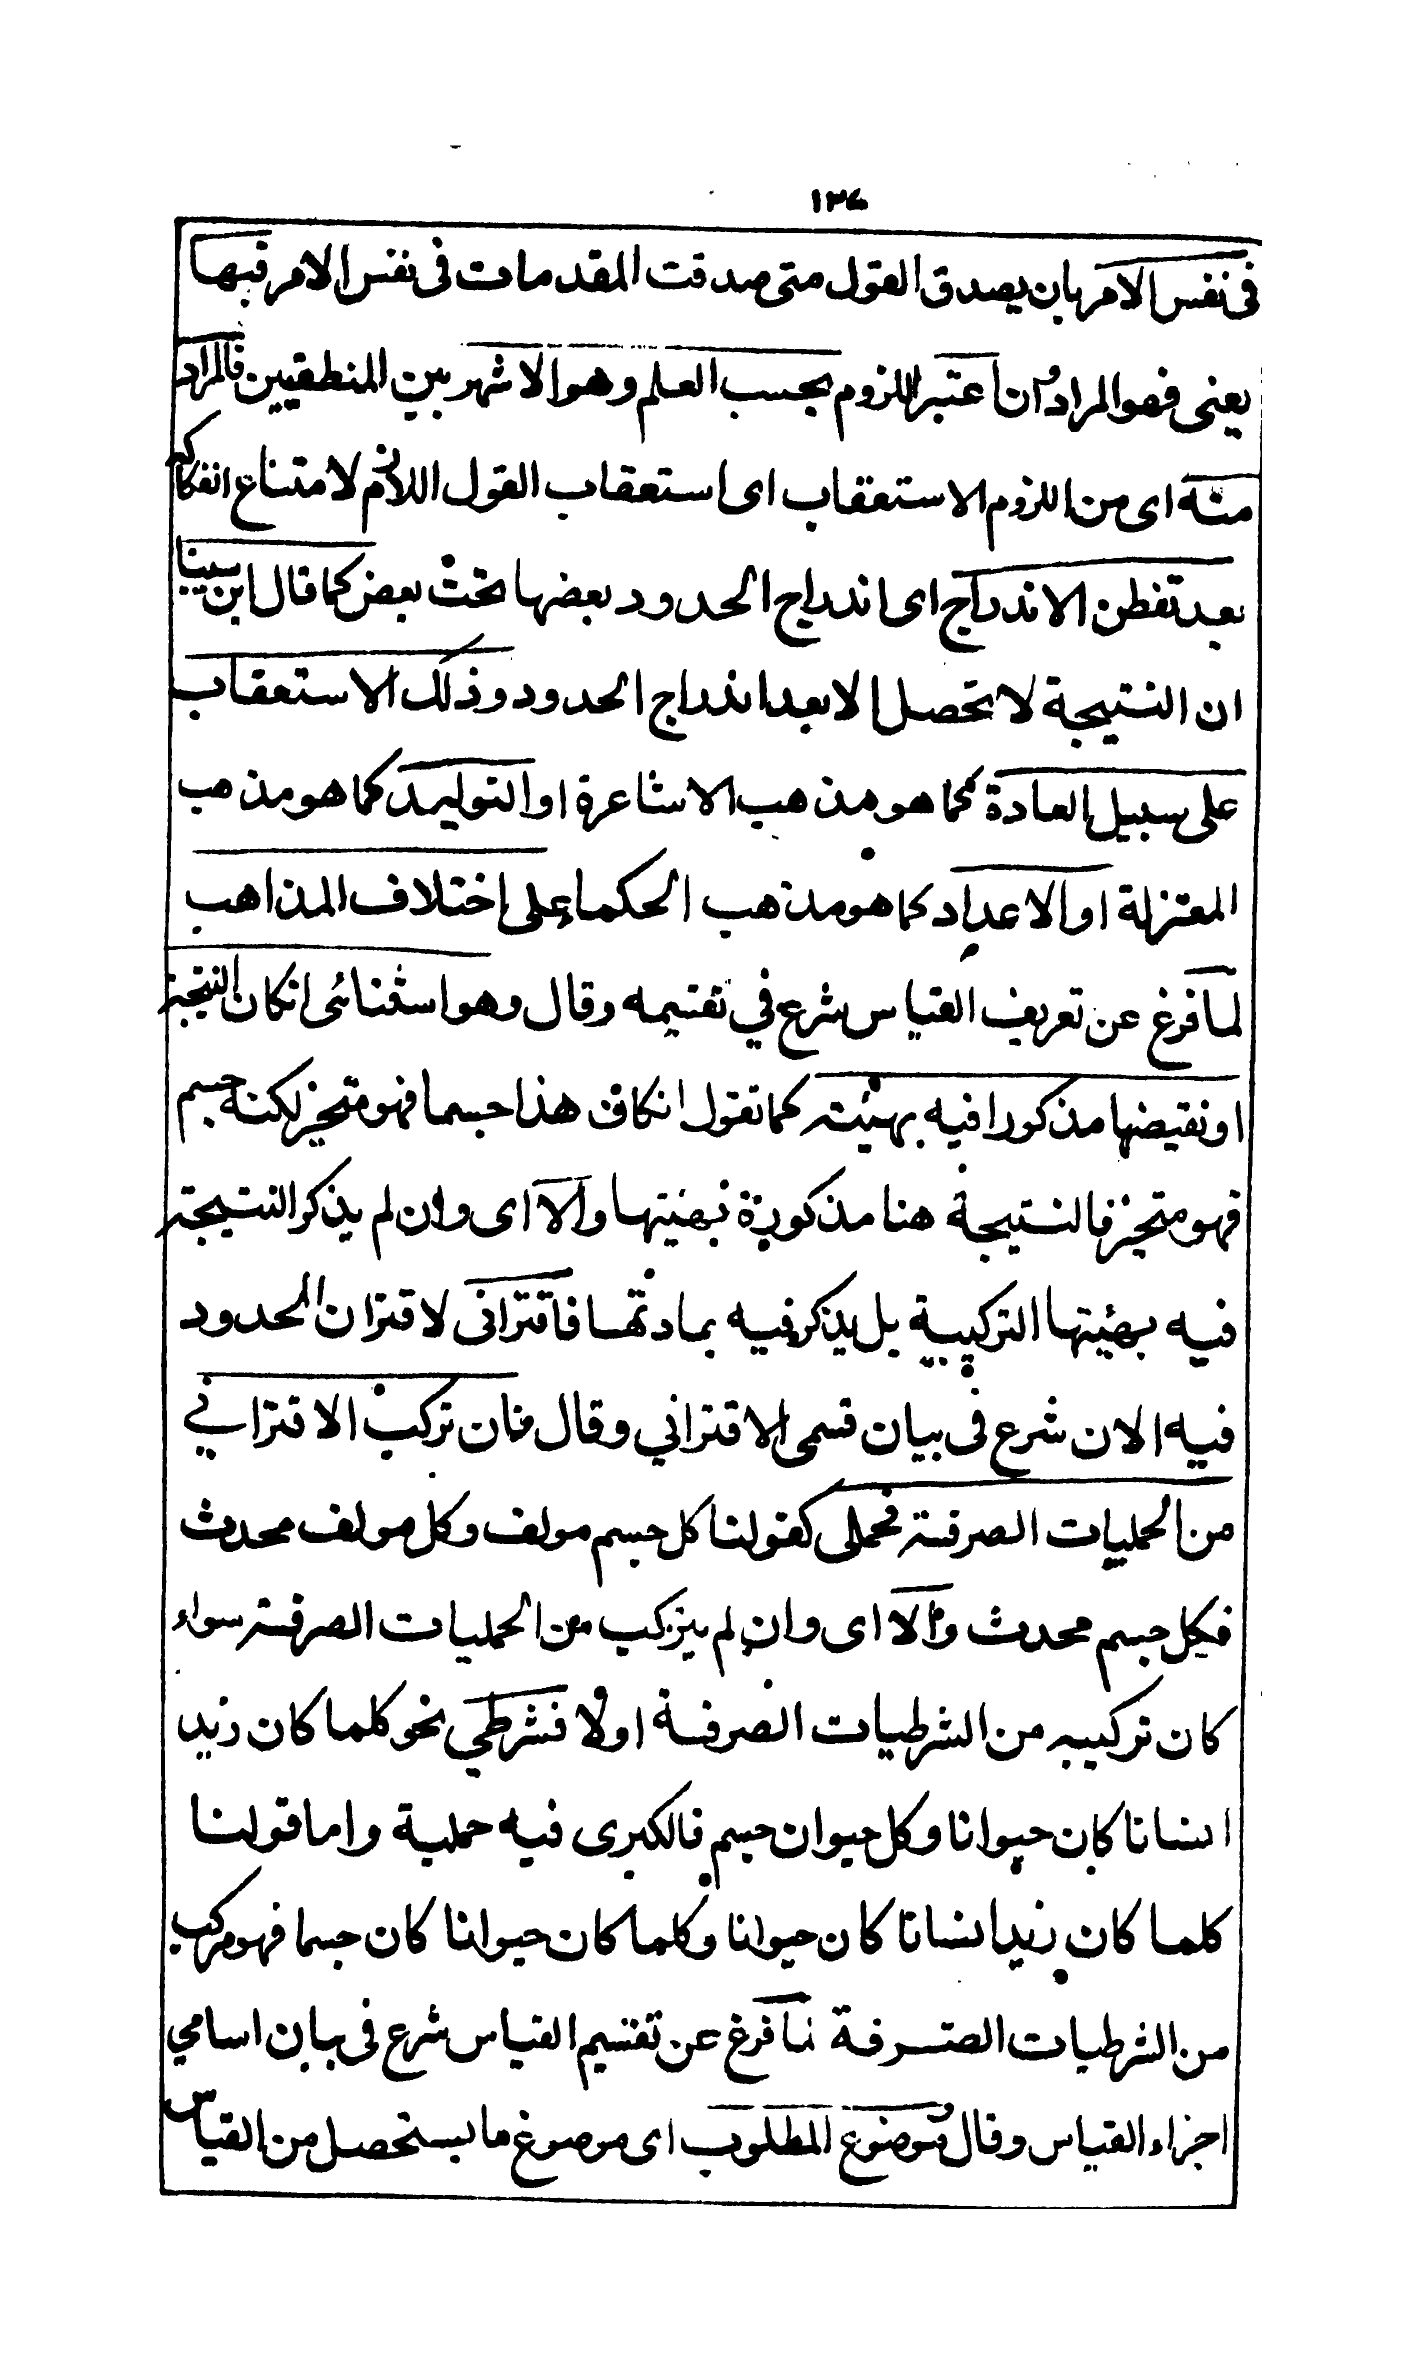 ١٣٧
فى نفس الامر بان يصدق القول متى صدقت المقدمات فى نفس الامر فبها
يعنى فهو المراد وان اعتبر اللزوم بحسب العلم وهو الاشهر بين المنطقيين فالمراد
منه اى من اللزوم الاستعقاب اى استعقاب القول اللازم لامتناع انفكاكه
بعد تفطن الاندراج اى اندراج الحدود بعضها تحت بعض كما قال ابن سينا
ان النتيجة لا تحصل الا بعد اندراج الحدود وذلك الاستعقاب
على سبيل العادة كما هو مذهب الاشاعرة او التوليد كما هو مذهب
المعتزلة او الاعداد كما هو مذهب الحكماء على اختلاف المذاهب
لما فرغ عن تعريف القياس شرع في تقسيمه وقال وهو استثنائى انكان النتيجة
او نقيضها مذكورا فيه بهيئته كما تقول انكان هذا جسما فهو متحيز لكنه جسم
فهو متحيز فالنتيجة هنا مذكورة بهيئتها والا اى وان لم يذكر النتيجة
فيه بهيئتها التركيبية بل يذكر فيه بمادتها فاقترانى لاقتران الحدود
فيه الان شرع فى بيان قسمى الاقتراني وقال فان تركب الاقتراني
من الحمليات الصرفة فحملى كقولنا كل جسم مولف وكل مولف محدث
فكل جسم محدث والا اى وان لم يتركب من الحمليات الصرفة سواء
كان تركيبه من الشرطيات الصرفة اولا فشرطي نحو كلما كان زيد
انسانا كان حيوانا وكل حيوان جسم فالكبرى فيه حملية واما قولنا
كلما كان زيد انسانا كان حيوانا وكلما كان حيوانا كان جسما فهو مركب
من الشرطيات الصرفة لما فرغ عن تقسيم القياس شرع فى بيان اسامي
اجزاء القياس وقال وموضوع المطلوب اى موضوع ما يستحصل من القياس